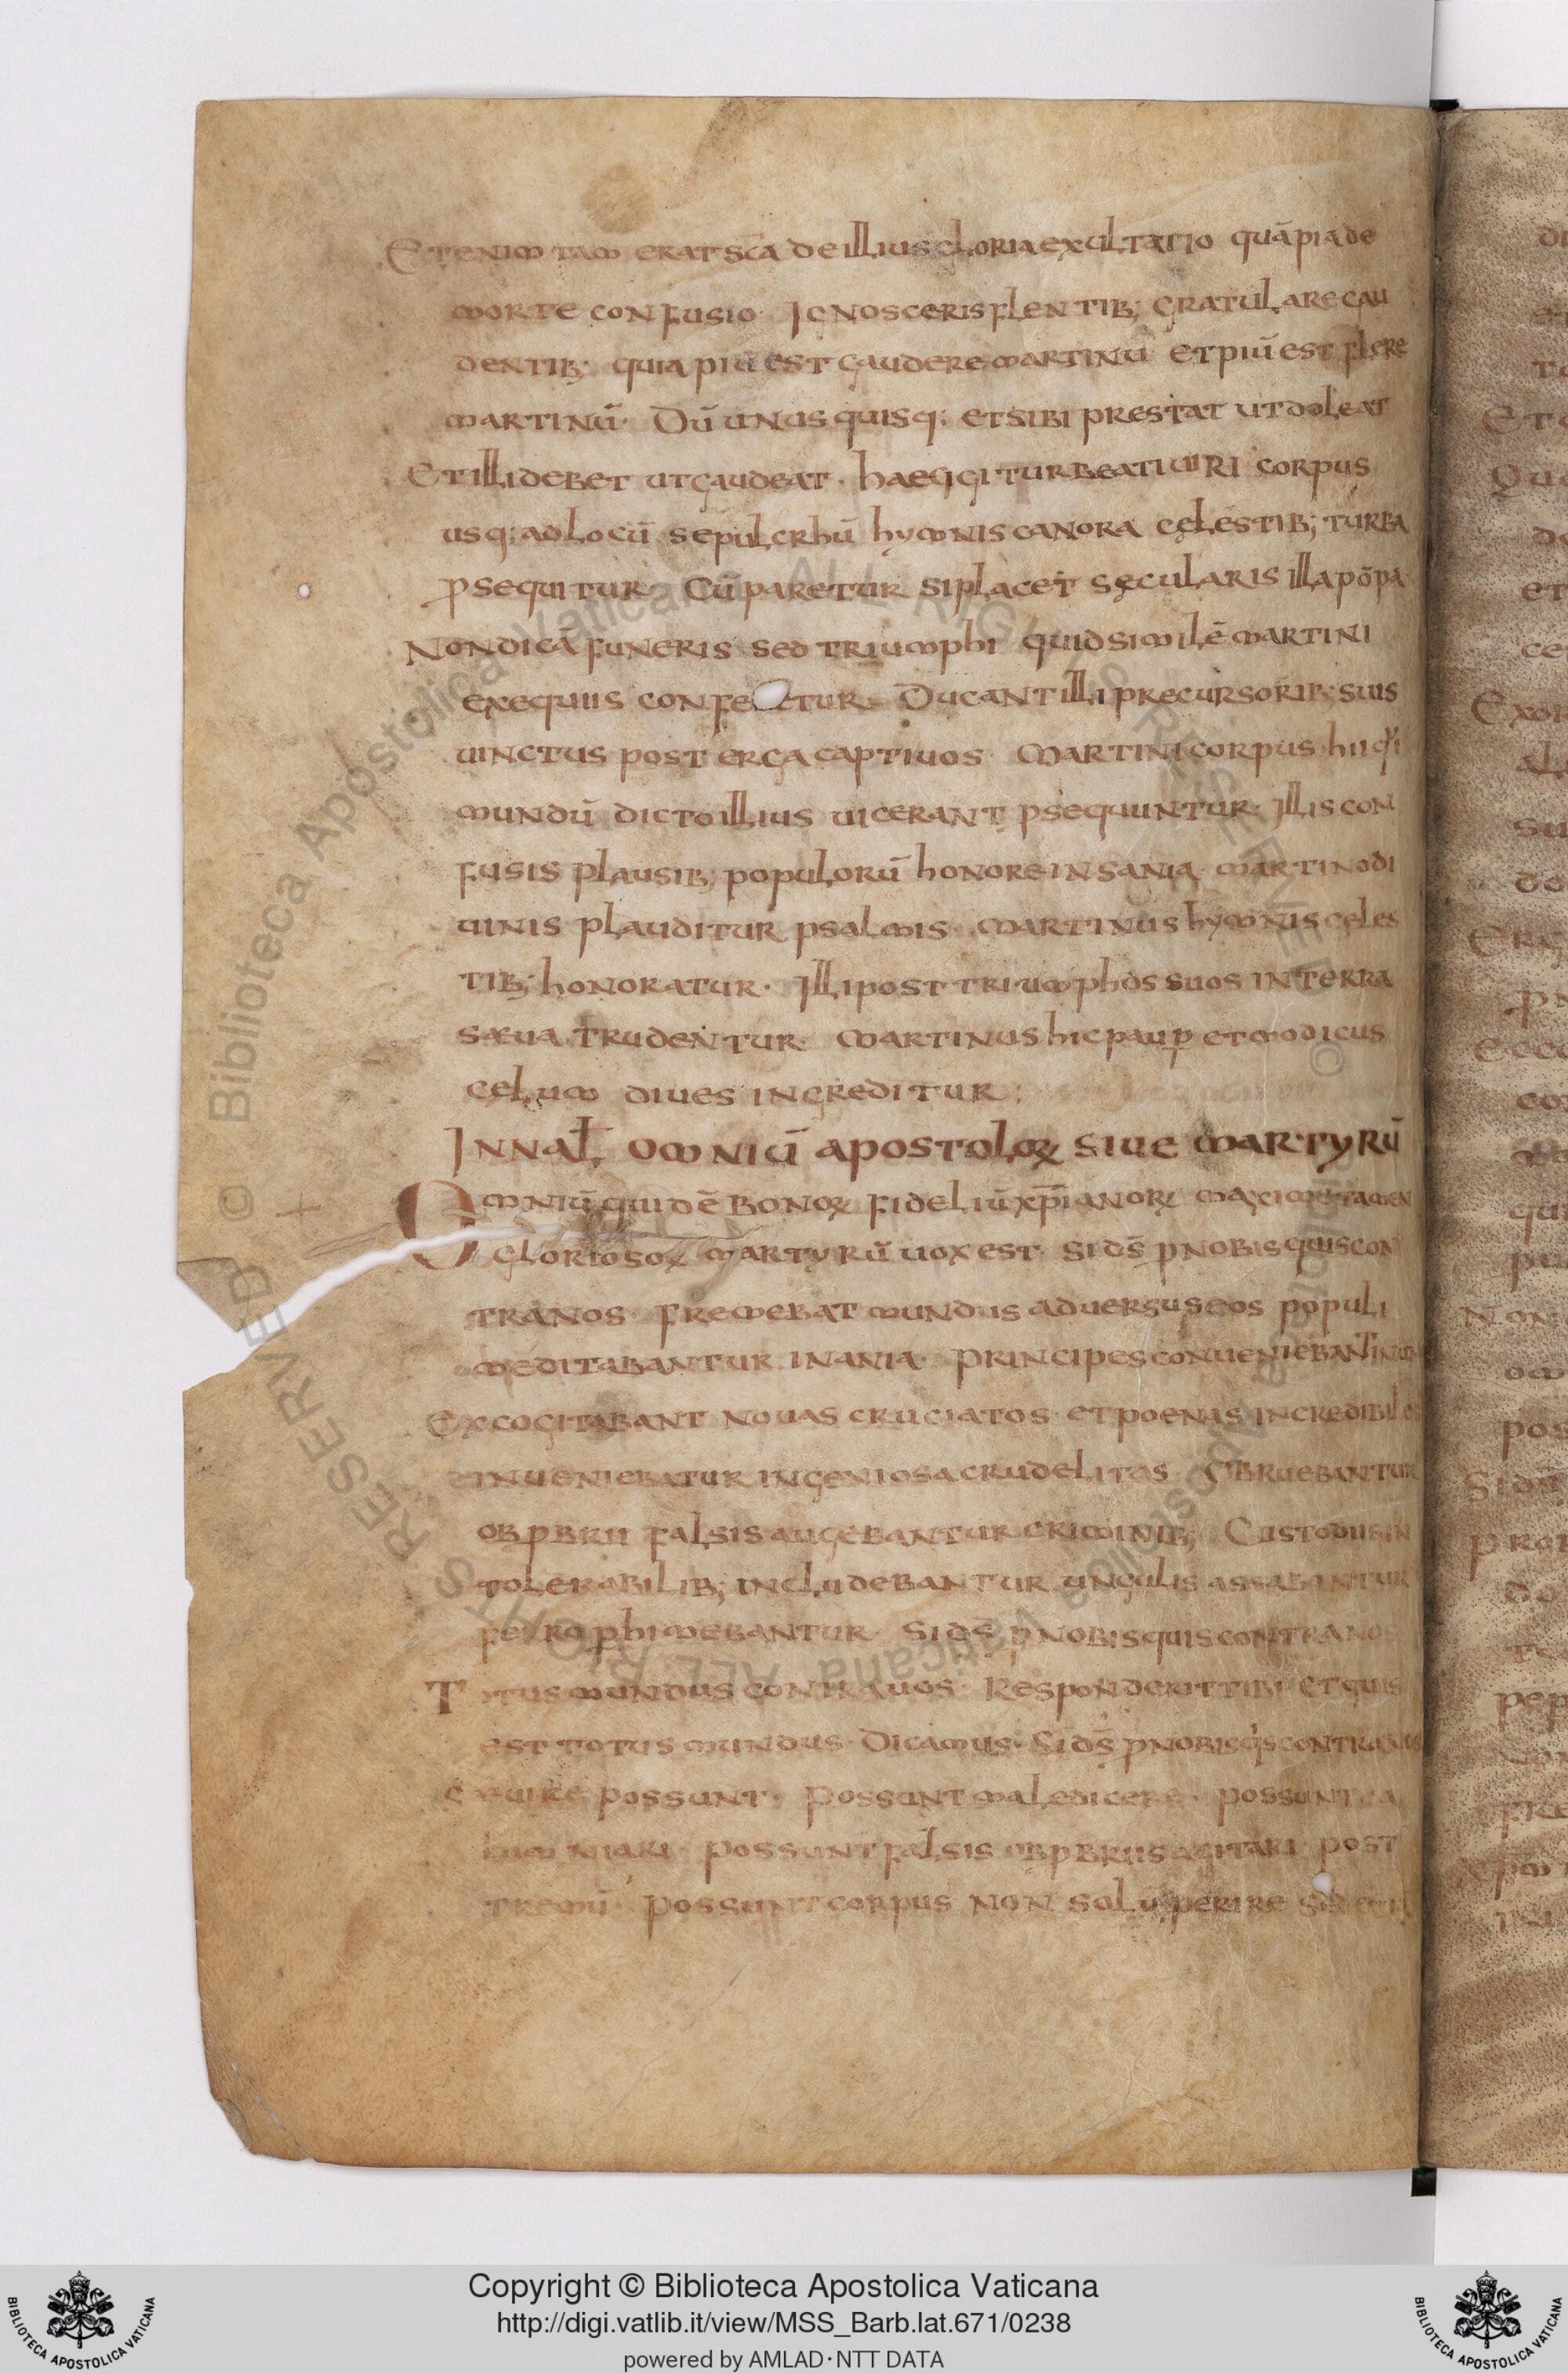 Etenim tam erat sc̄a de illius gloria exultatio quā pia de
morte confusio. Ignosceris flentib; gratulare gau
dentib; quia piū est gaudere martinū et piū est flere
martinū. Dū unusquisq; et sibi prestat ut doleat
Et illi debet ut gaudeat. haec igitur beati uiri corpus
usq; ad locū sepulcrhū hymnis canora cęlestib; turba
ꝓsequitur. Cū paretur si placet sęcularis illa pōpa
Non dicā funeris sed triumphi quid simile martini
exequiis confe etur. Ducant illi precursorib; suis
uinctus post erga captiuos. Martini corpus hii qi
mundū dicto illius uicerant ꝓsequuntur. Illis con
fusis plausib; populorū honore insania martino di
uinis plauditur psalmis. martinus hymnis celes
tib; honoratur. Illi post triumphos suos in terra
sæua trudentur. Martinus hic paup̱ et modicus
celum diues ingreditur;
IN NAT̄L OMNIŪ APOSTOLOꝜ SIUE MARTYRŪ
Omniū quidē bonoꝝ fideliū xp̄ianoꝝ maxime tamen
gloriosoꝝ martyrū uox est. Si d̄s ꝓ nobis quis con
tra nos. fremebat mundus aduersus eos populi
meditabantur inania. principes conueniebant in un
Excogitabant nouas cruciatos. et poenas incredibiles
inueniebatur ingeniosa crudelitas. Obruebantur
obꝓbrii falsis augebantur criminib; Custodiis in
tolerabilib; includebantur ungulis assabantur
ferro ꝓhimebantur. Si d̄s ꝓ nobis quis contra nos
Totus mundus contra uos. Responderit tibi et quis
est totus mundus. Dicamus. Si d̄s ꝓ nobis qis contra nos
possunt. possunt maledicere. possunt ca
lumniari. possunt falsis obꝓbriis agitari. post
tremū. possunt corpus non solū perire sed
Copyright © Biblioteca Apostolica Vaticana
http://digi.vatlib.it/view/MSS_Barb.lat.671/0238
powered by AMLAD·NTT DATA